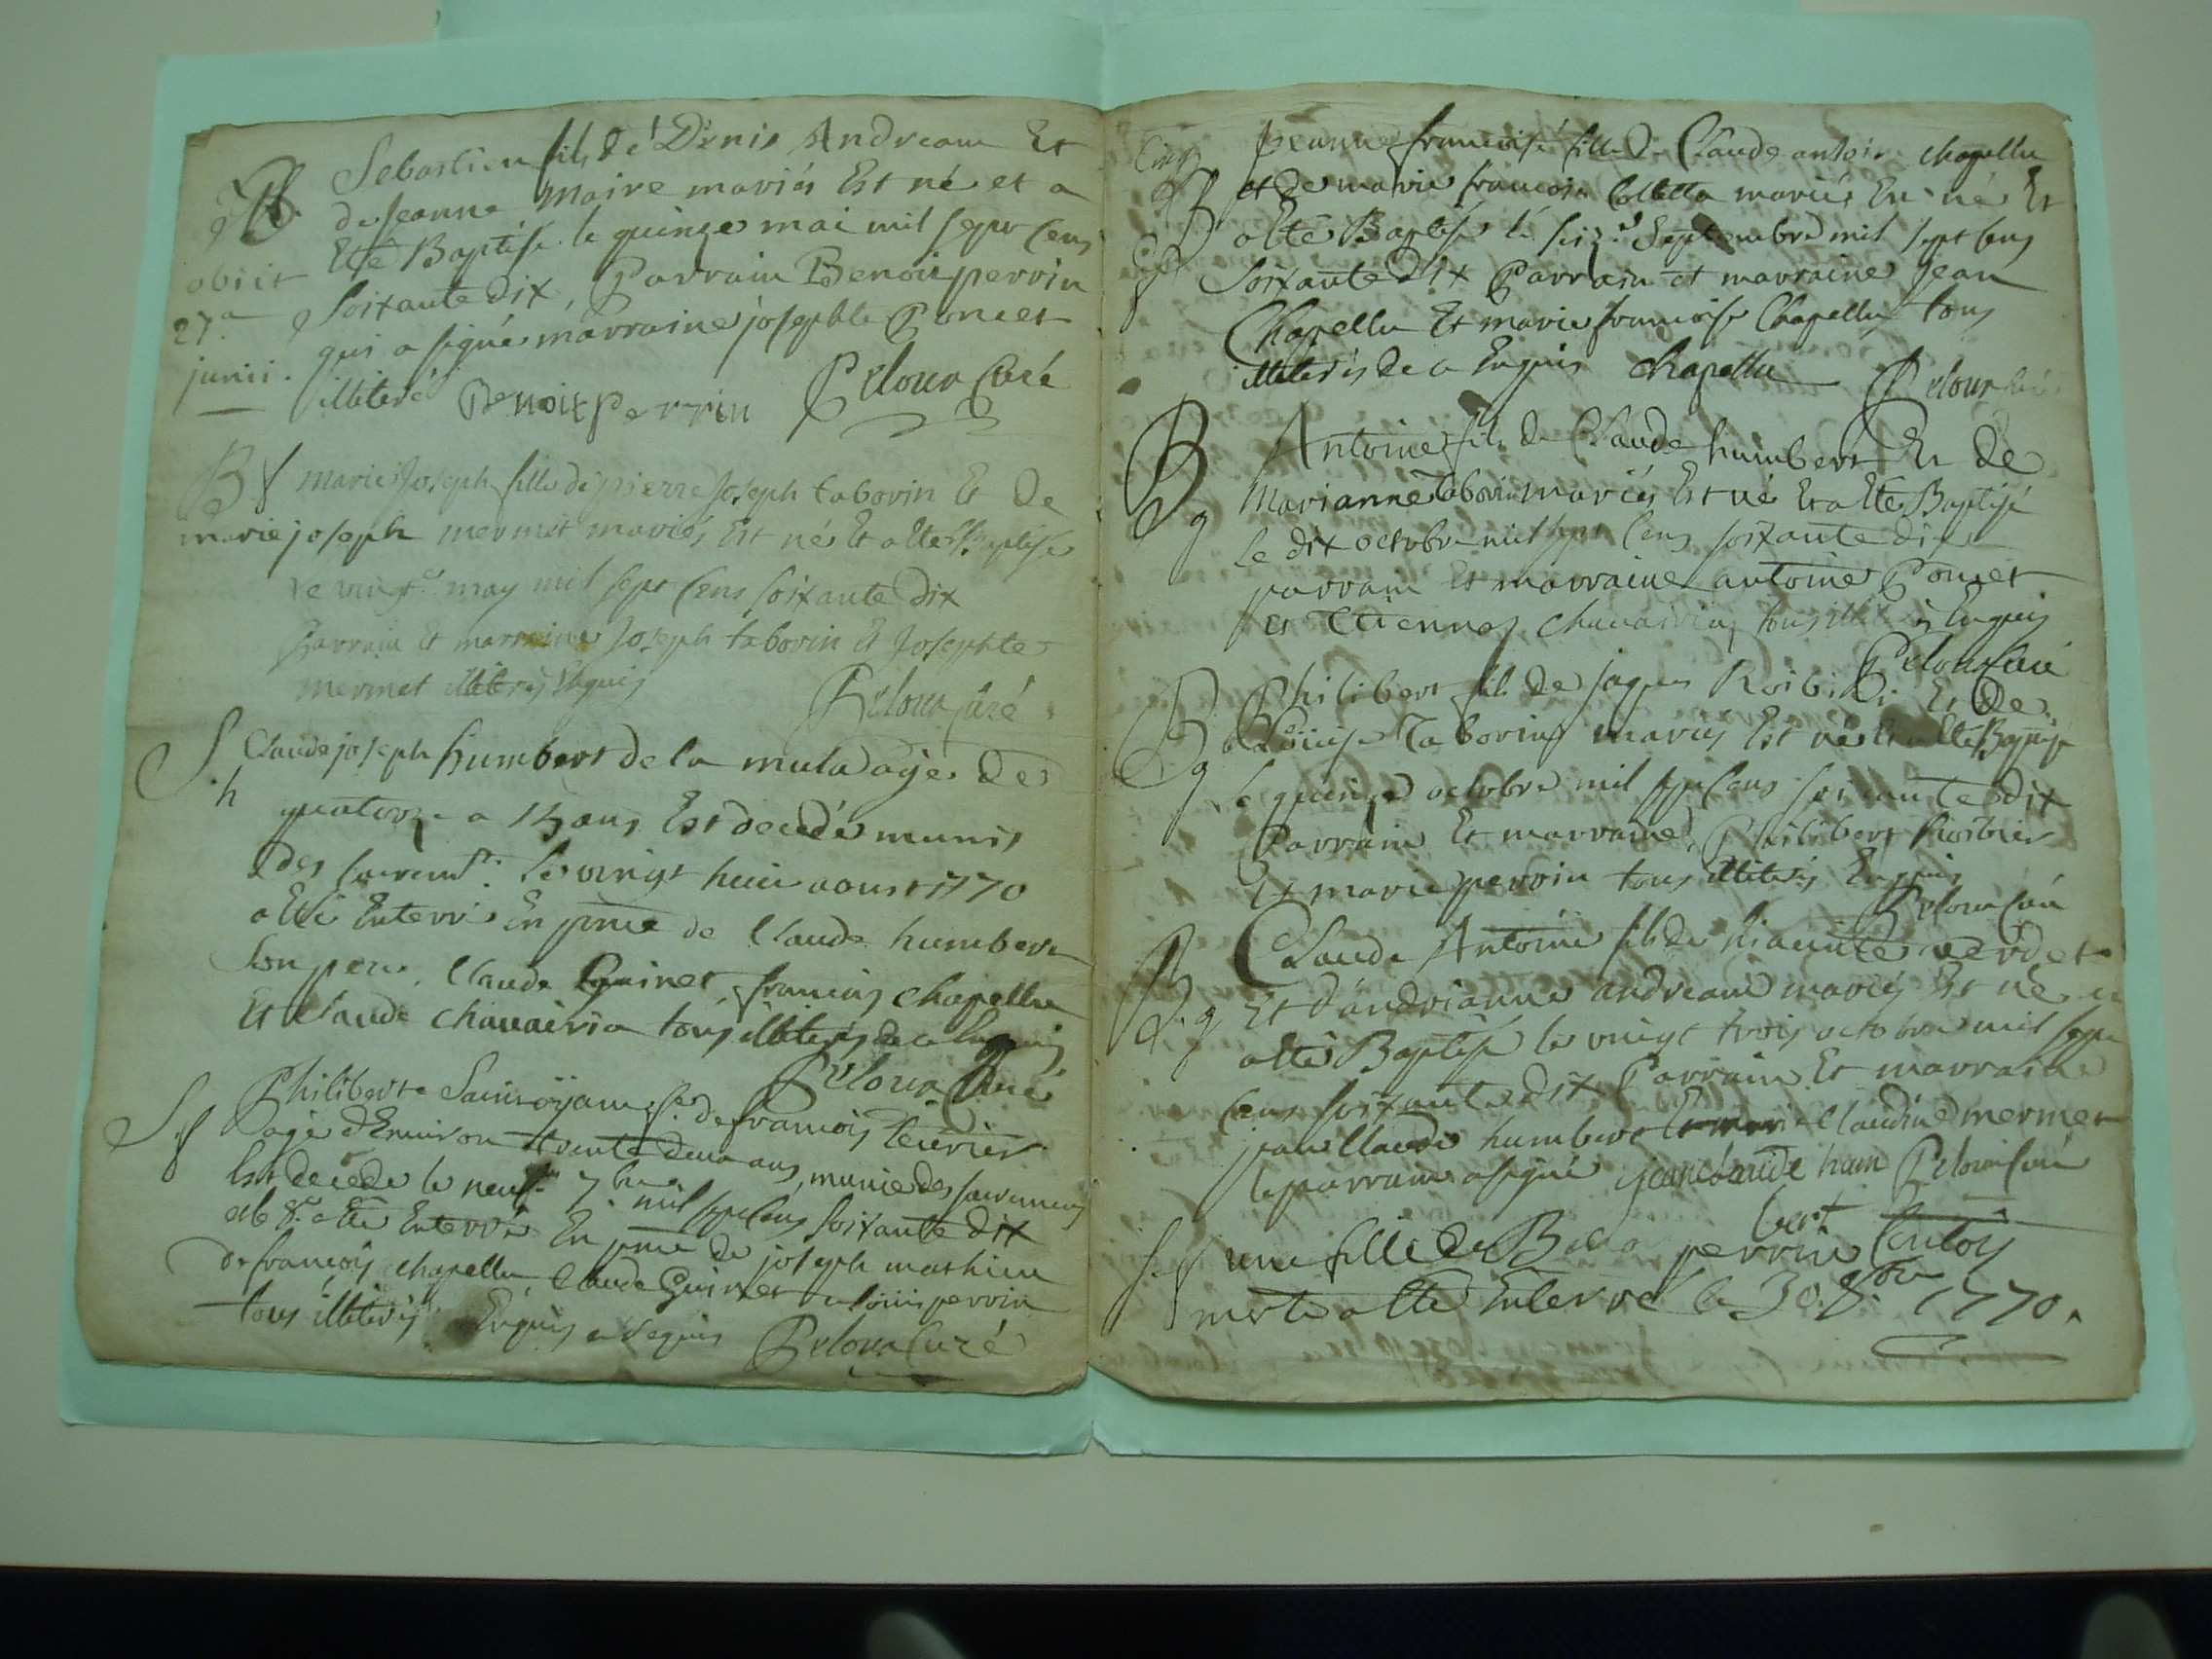 Sebastien fils de Denis Andreane Et
de jeanne Maire mariés Est né et a
Eté Baptisé le quinze mai mil sept Cens
soixante dix, Parrain Benoit perrin
qui a signé marraine josephte Poncet
illiteré Benoit perrin Peloux Curé
obiit
27a
junii.
B f
marie Joseph fille de pierre Joseph taborin Et De
marie joseph mermet mariés Est né Et a Eté Baptisé
le vingt may mil sept Cens soixante dix
Parrain Et marraine Joseph taborin Et Josephte
mermet illiterés Enquis
Peloux Curé
S
h
Claude joseph humbert de la mula agé De
quatorze a 15 ans Est decedé munis
des sacremts. le vingt huit aoust 1770
a Eté Enterré En pnce de Claude humbert
son pere, Claude Guinet francois chapellu
Et Claude chavairia tous illiterés de ce Enquis
Peloux Curé
S f
Philiberte Saintoyan fe de francois Teurier
agé d'Environ trente deux ans, munie des sacremens
Est decedé le neuf 7bre mil sept Cens soixante dix
a Eté Enterré En pnce de joseph mathieu
de francois chapellu, Claude Guinet louis perrin
tous illiterés Enquis
Peloux Curé
jeanne francoise fille De Claude antoine chapellu
et de marie francoise Colletta mariés Est né Et
a Eté Baptisé le seize Septembre mil sept Cens
soixante Dix Parrain et marraine Jean
Chapellu Et marie francoise Chapellu tous
illiterés de ce Enquis chapellu Peloux
B
g
Antoine fils De Claude humbert Et De
Marianne Taborin mariés Est né Et a Eté Baptisé
le dix octobre mil sept Cens soixante dix
parrain Et marraine antoine Poncet
et Etienne chavairia, tous Enquis
Peloux Curé
B
g
Philibert fils de jaques Et De
Louise Taborin mariés Est né Et a Eté Baptisé
le quinze octobre mil sept Cens soixante dix
Parrain Et marraine, Philibert
Et marie perrin tous illiterés Enquis
Peloux Curé
B.g
Claude Antoine fils de hiacinte verdet
Et d'andrianne andreane mariés Est né et
a Eté Baptisé le vingt trois octobre mil sept
Cens soixante dix Parrain Et marraine
jean Claude humbert Et marie Claudine mermet
le parrain a signé jean claude hum Peloux Curé
bert
S f
une fille De perrin
morte a Eté Enterré le 30 8bre 1770.